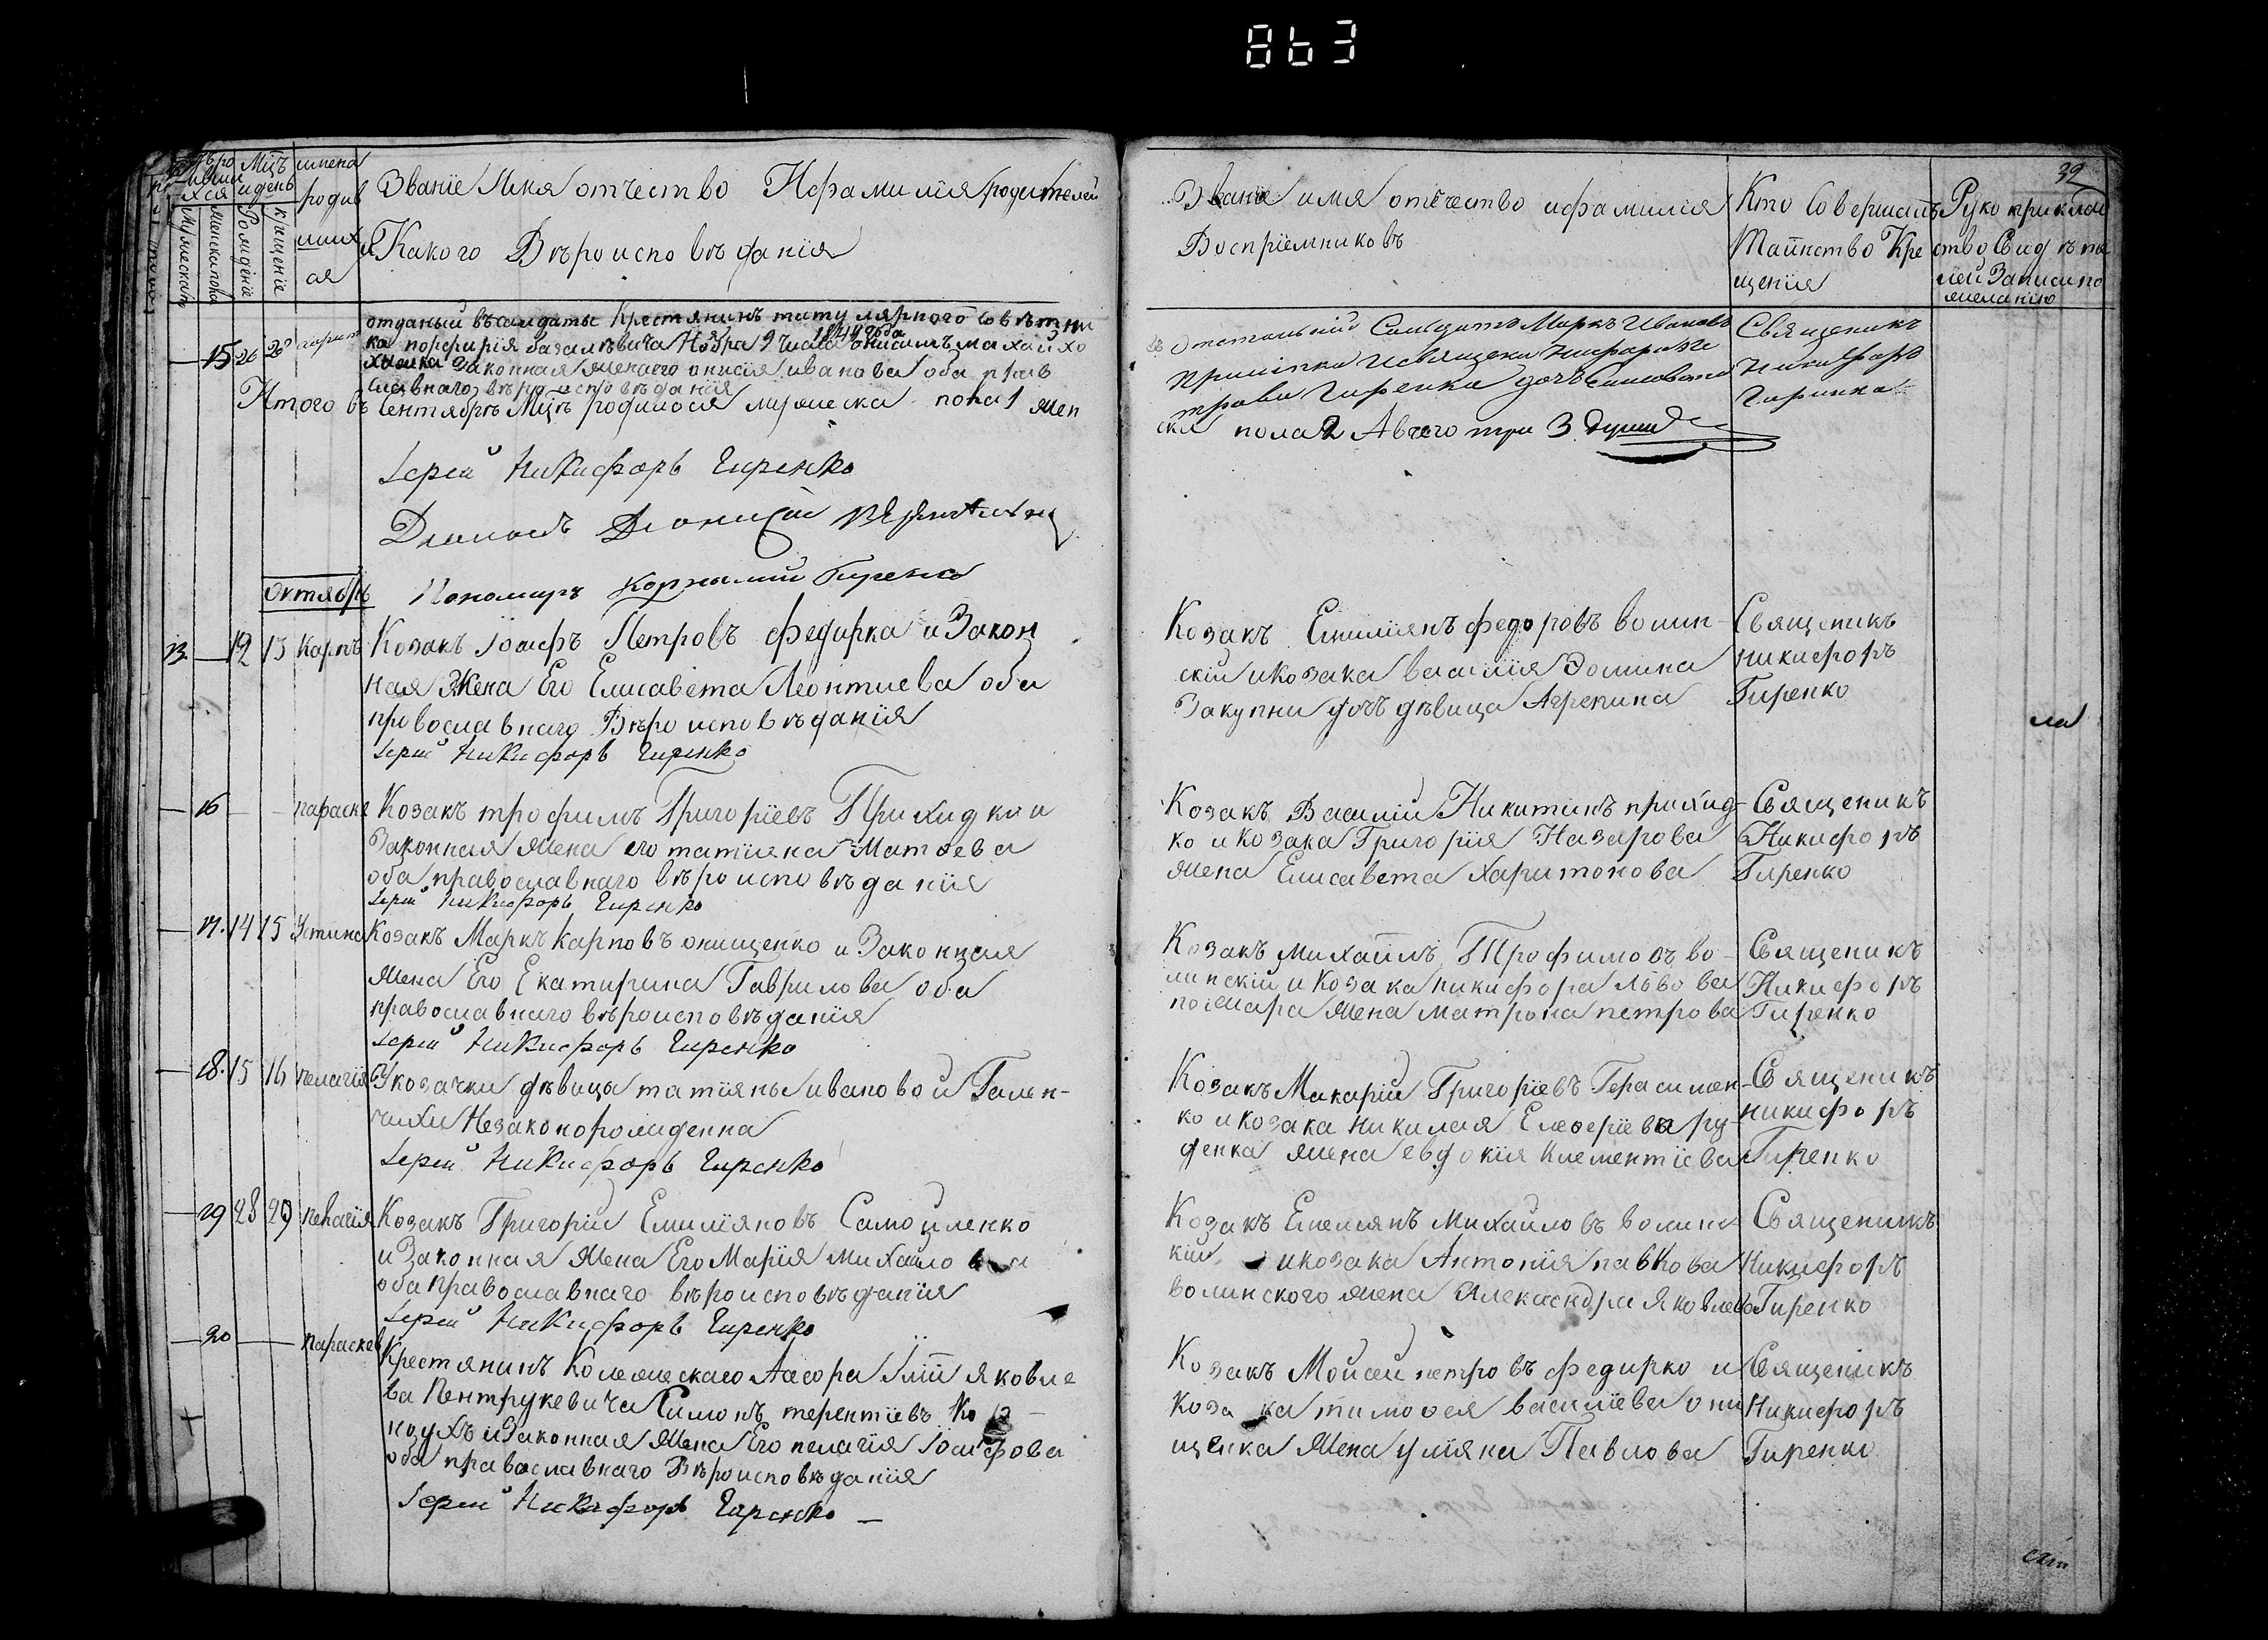 863
39
имена
родив
шихъ
ся
Рождение
Крещение
Званіе Имя отчество И фамилія родителей
и Какого Вѣроисповѣданія
Званіе имя отечество и фамилія
Воспріемниковъ
Кто Совершалъ
Таинство Кре
щенія
Рукоприклад
ство
желанію
15 26 26
отданый въ солдаты Крестянинъ титулярного совѣтни
ка порфирія
законная жена его онисія иванова оба прав
славнаго вѣроисповѣданія
Отставный Солдатъ Маркъ Ивановъ
Священикъ
Никифоръ
Гиренко
Итого въ Сентябрѣ Мцѣ родилося мужеска пола 1 жен
ска пола 2 А всего три 3 души
Іерей Никифоръ Гиренко
Диаконъ Дионисій
Пономаръ Корнилий Гиренко
Октябрь
13 12 13 Карпъ
Козакъ Іосифъ Петровъ федирка и Закон
ная Жена Его Елисавета Леонтиева оба
провославнаго Вѣроисповѣданія
Іерей Никифоръ Гиренко
Козакъ Емилиянъ федоровъ волин
скій и козака василія Зомина
Закупни дочъ дѣвица Агрепина
Священикъ
никифоръ
Гиренко
16 параске
Козакъ трофимъ Григоріевъ Прихидко и
Законная жена его татіяна Матфева
оба православнаго вѣроисповѣданія
Іерей Никифоръ Гиренко
Козакъ Василій Никитинъ прихид
ко и козака Григорія Назарова
жена Елисавета Харитонова
Священикъ
Никифоръ
Гиренко
17. 14 15 Устина
Козакъ Маркъ Карповъ онищенко и Законная
жена Его Екатирина Гаврилова оба
православнаго вѣроисповѣданія
Іерей Никифоръ Гиренко
Козакъ михаилъ Трофимовъ во
линскій и козака никифора Львова
пожмара жена матрона петрова
Священикъ
Никифоръ
Гиренко
18. 15 16 пелагія
У козачки дѣвицы татіяны ивановой Гален
чихи Незаконорожденна
Іерей Никифоръ Гиренко
Козакъ Макарій Григоріевъ Герасимен
ко и козака николая Елеоеріева ру
денка жена евдокия Клементіева
Священикъ
никифоръ
Гиренко
19 28 29 пелагія
Козакъ Григорій Емилияновъ Самойленко
и Законная жена Его Марія михайлова
оба православнаго вѣроисповѣданія
Іерей Никифоръ Гиренко
Козакъ Емелянъ михайловъ волинс
кій и козака Антонія павлова
волинского жена Александра Яковлева
Священикъ
Никифоръ
Гиренко
20 параскев
Крестянинъ Колежскаго Асесора Яковле
ва Пентрукевича Симонъ терентіевъ Ко
поухъ и Законная Жена Его пелагія Іосифова
оба православнаго Вѣроисповѣданія
Іерей Никифоръ Гиренко
Козакъ Мойсей петровъ федирко и
козака тимофея василіева они
щенка Жена уліяна Павлова
Священикъ
Никифоръ
Гиренко